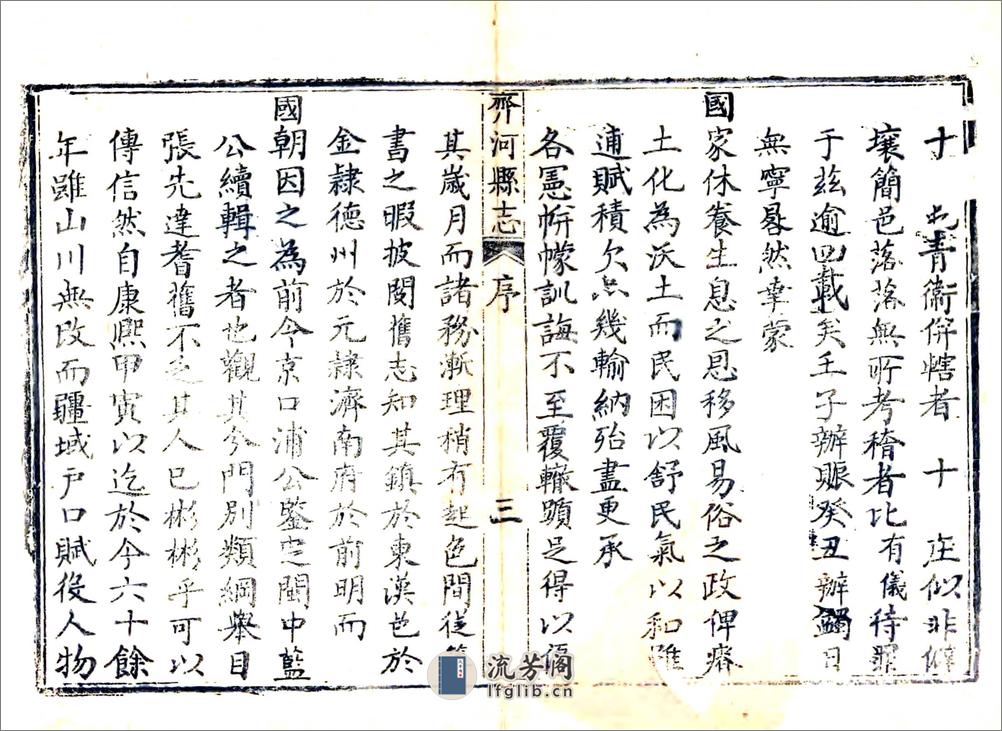 十　　青衛併轄者十　庄似非僻
壤簡邑落落無所考稽者比有儀待罪
于茲逾四載矣壬子辦賑癸丑辦蠲日
無寧晷然幸蒙
國家休養生息之恩移風易俗之政俾瘠
土化為沃土而民困以舒民氣以和雖
逋賦積欠　幾輸納殆盡更承
各憲帡幪訓誨不至覆轍顕足得以
齊河縣志　序　三
其歲月而諸務漸理稍有起色間從
書之暇披閱舊志知其鎮於東漢邑於
金隸德州於元隸濟南府於前明而
國朝因之為前令京口浦公鑒定閩中藍
公續輯之者也觀其分門別類綱舉目
張先達耆舊不乏其人已彬彬乎可以
傳信然自康熙甲寅以迄於今六十餘
年雖山川無改而疆域户口賦役人物
流芳阁
lfglib.cn